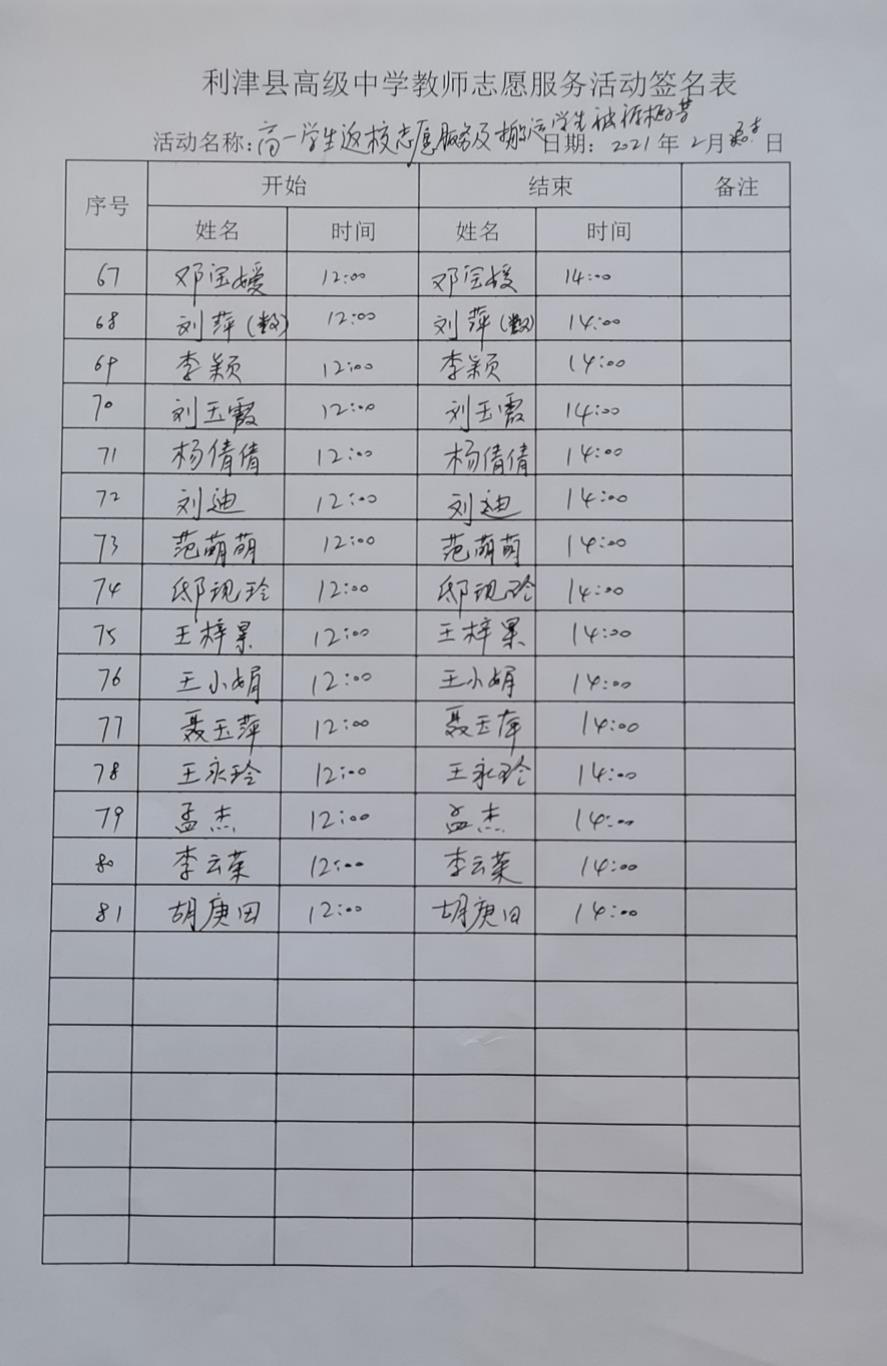 利津县高级中学教师志愿服务活动签名表
活动名称:高一学生返校志愿服务及搬运学生 日期: 2021年2月 日
序号 开始 结束 备注
姓名 时间 姓名 时间
67 邓宝嫒 12:00 邓宝嫒 14:00
68 刘萍(数) 12:00 刘萍(数) 14:00
69 李颖 12:00 李颖 14:00
70 刘玉霞 12:00 刘玉霞 14:00
71 杨倩倩 12:00 杨倩倩 14:00
72 刘迪 12:00 刘迪 14:00
73 范萌萌 12:00 范萌萌 14:00
74 邸现玲 12:00 邸现玲 14:00
75 王梓果 12:00 王梓果 14:00
76 王小娟 12:00 王小娟 14:00
77 聂玉萍 12:00 聂玉萍 14:00
78 王永玲 12:00 王永玲 14:00
79 孟杰 12:00 孟杰 14:00
80 李云荣 12:00 李云荣 14:00
81 胡庚田 12:00 胡庚田 14:00